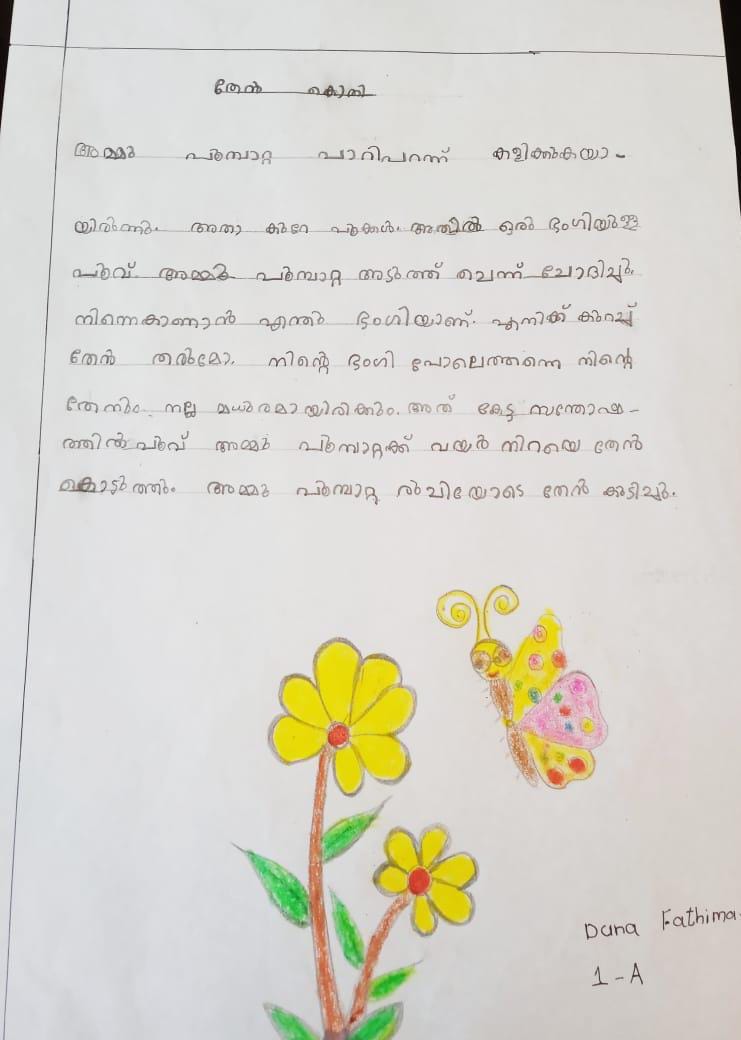 തേൻ കൊതി
അമ്മു പൂമ്പാറ്റ പാറിപറന്ന് കളിക്കുകയാ-
യിരുന്നു. അതാ കുറേ പൂക്കൾ. അതിൽ ഒരു ഭംഗിയുള്ള
പൂവ്. അമ്മു പൂമ്പാറ്റ അടുത്ത് ചെന്ന് ചോദിച്ചു.
നിന്നെകാണാൻ എന്തു ഭംഗിയാണ്. എനിക്ക് കുറച്ച്
തേൻ തരുമോ. നിന്റെ ഭംഗി പോലെത്തന്നെ നിന്റെ
തേനും നല്ല മധുരമായിരിക്കും. അത് കേട്ട സന്തോഷ-
ത്തിൽ പൂവ് അമ്മു പൂമ്പാറ്റക്ക് വയർ നിറയെ തേൻ
കൊടുത്തു. അമ്മു പൂമ്പാറ്റ രുചിയോടെ തേൻ കുടിച്ചു.
Dana Fathima.
1-A